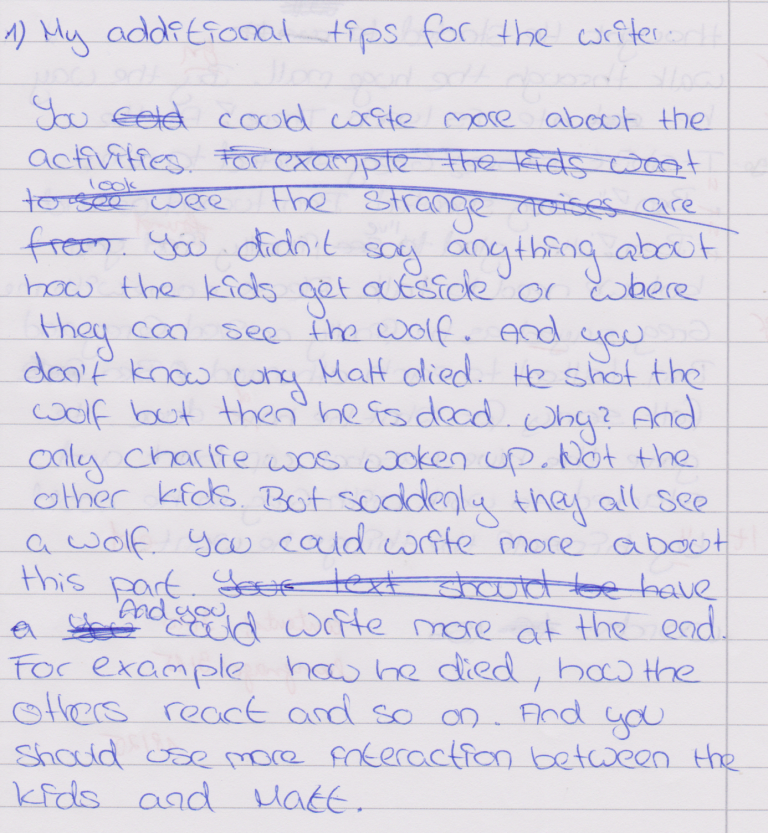 1) My additional tips for the writer:
You cold could write more about the
activities. for example the kids want
to see look were the strange noises are
from you didn't say anything about
how the kids get outside or where
they can see the wolf. And you
don't know why Matt died. He shot the
wolf but then he is dead. Why? And
only Charlie was woken up. Not the
other kids. But suddenly they all see
a wolf. You could write more about
this part. Your text should be have
a And you could write more at the end.
For example how he died, how the
others react and so on. And you
should use more interaction between the
kids and Matt.